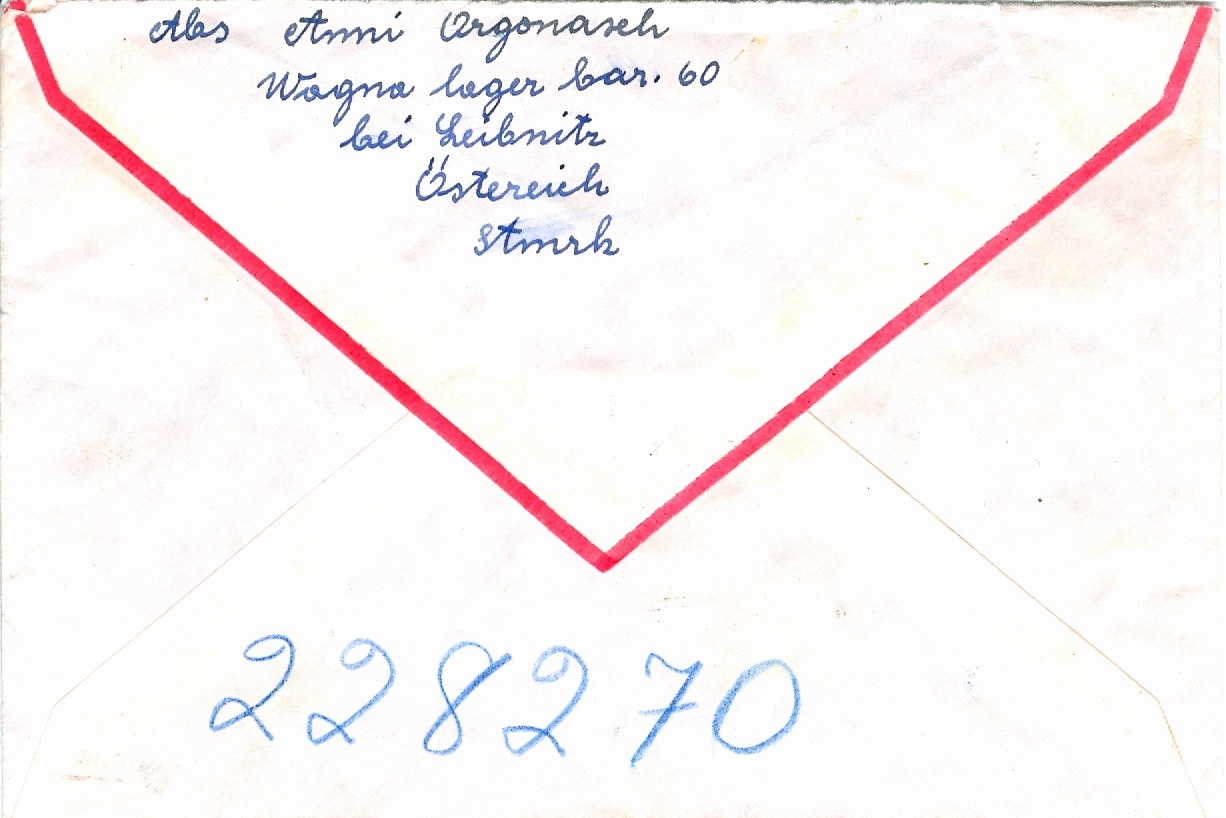 Abs Anni Orgonasch
Wagna lager bar. 60
bei Leibnitz
Östereich
Stmrk
228270